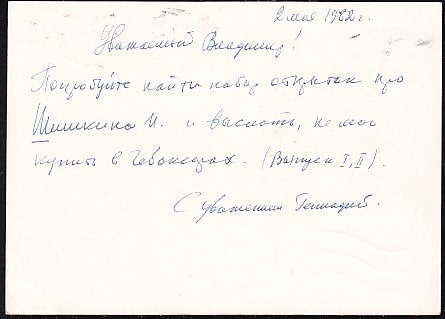 2 мая 1982 г.
Уважаемый Владимир!
Попробуйте найти набор открыток про
Шишкина И. и выслать, не мог
купить в Чебоксарах. (Выпуск I, II).
С уважением Геннадий.